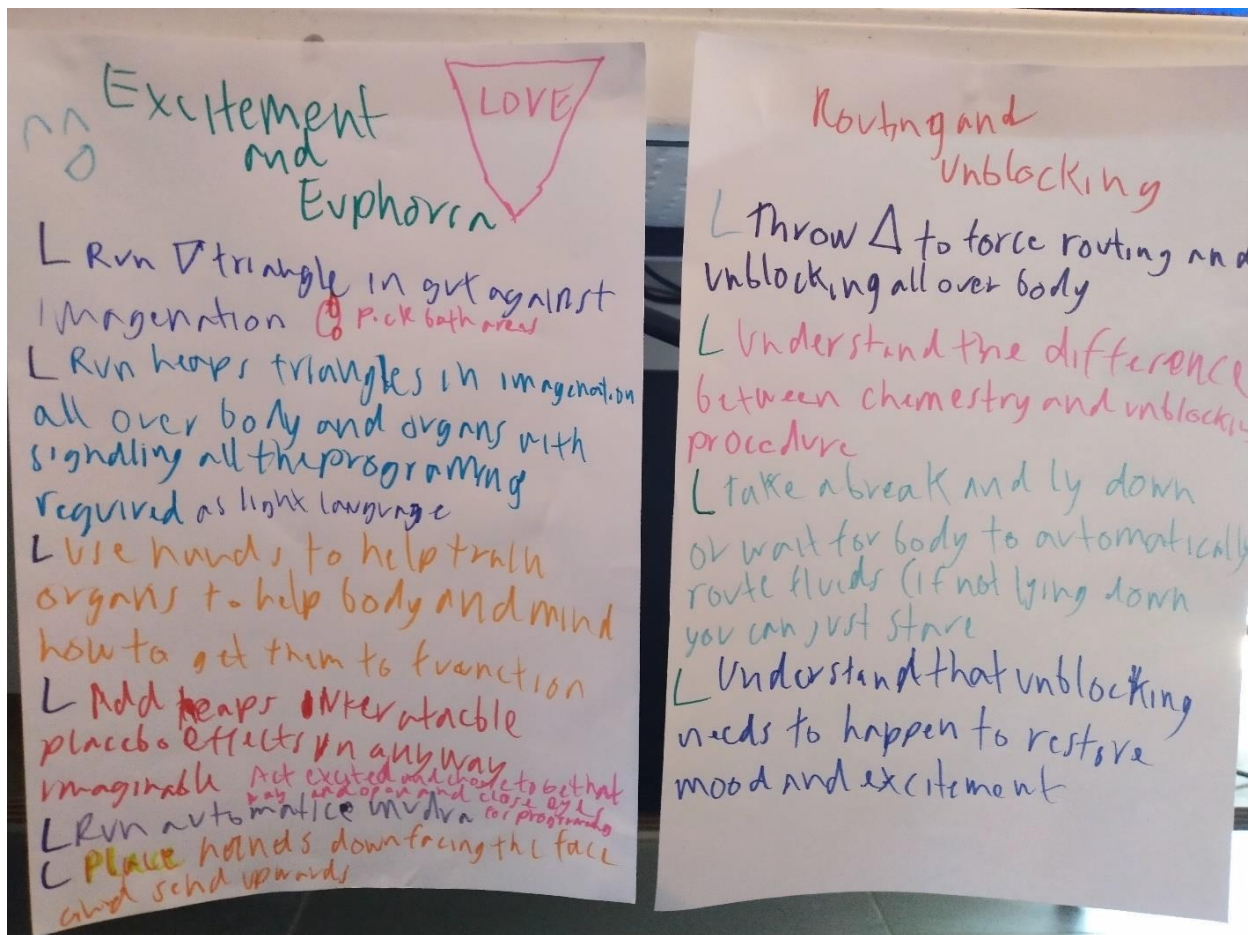 Excitement
and
Euphoria
LOVE
L Run ▽ triangle in gut against
imagenation pick both areas
L Run heaps triangles in imagenation
all over body and organs with
signalling all the programing
required as light language
L Use hands to help train
organs to help body and mind
how to get them to function
L Add heaps
placebo effects in anyway
imaginable Act excited and chose to be that
way and open and close eyes
L Run automatice mudra for programing
L Place hands down facing the face
and send upwards
Routing and
unblocking
L Throw △ to force routing and
unblocking all over body
L Understand the difference
between chemestry and
procedure
L take a break and ly down
or wait for body to automatically
route fluids (if not lying down
you can just stare
L Understand that unblocking
needs to happen to restore
mood and excitement